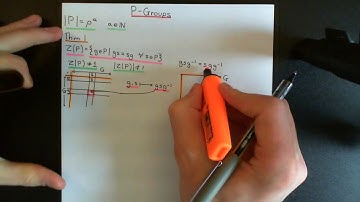 P-Groups
|P| = pᵅ α∈ℕ
Thm 1
Z(P) = {g∈P | gs=sg ∀ s∈P}
Z(P) ≠ 1 |Z(P)| ≠ 1
G
G
g·s
gsg⁻¹
gsg⁻¹ = sgg⁻¹
G